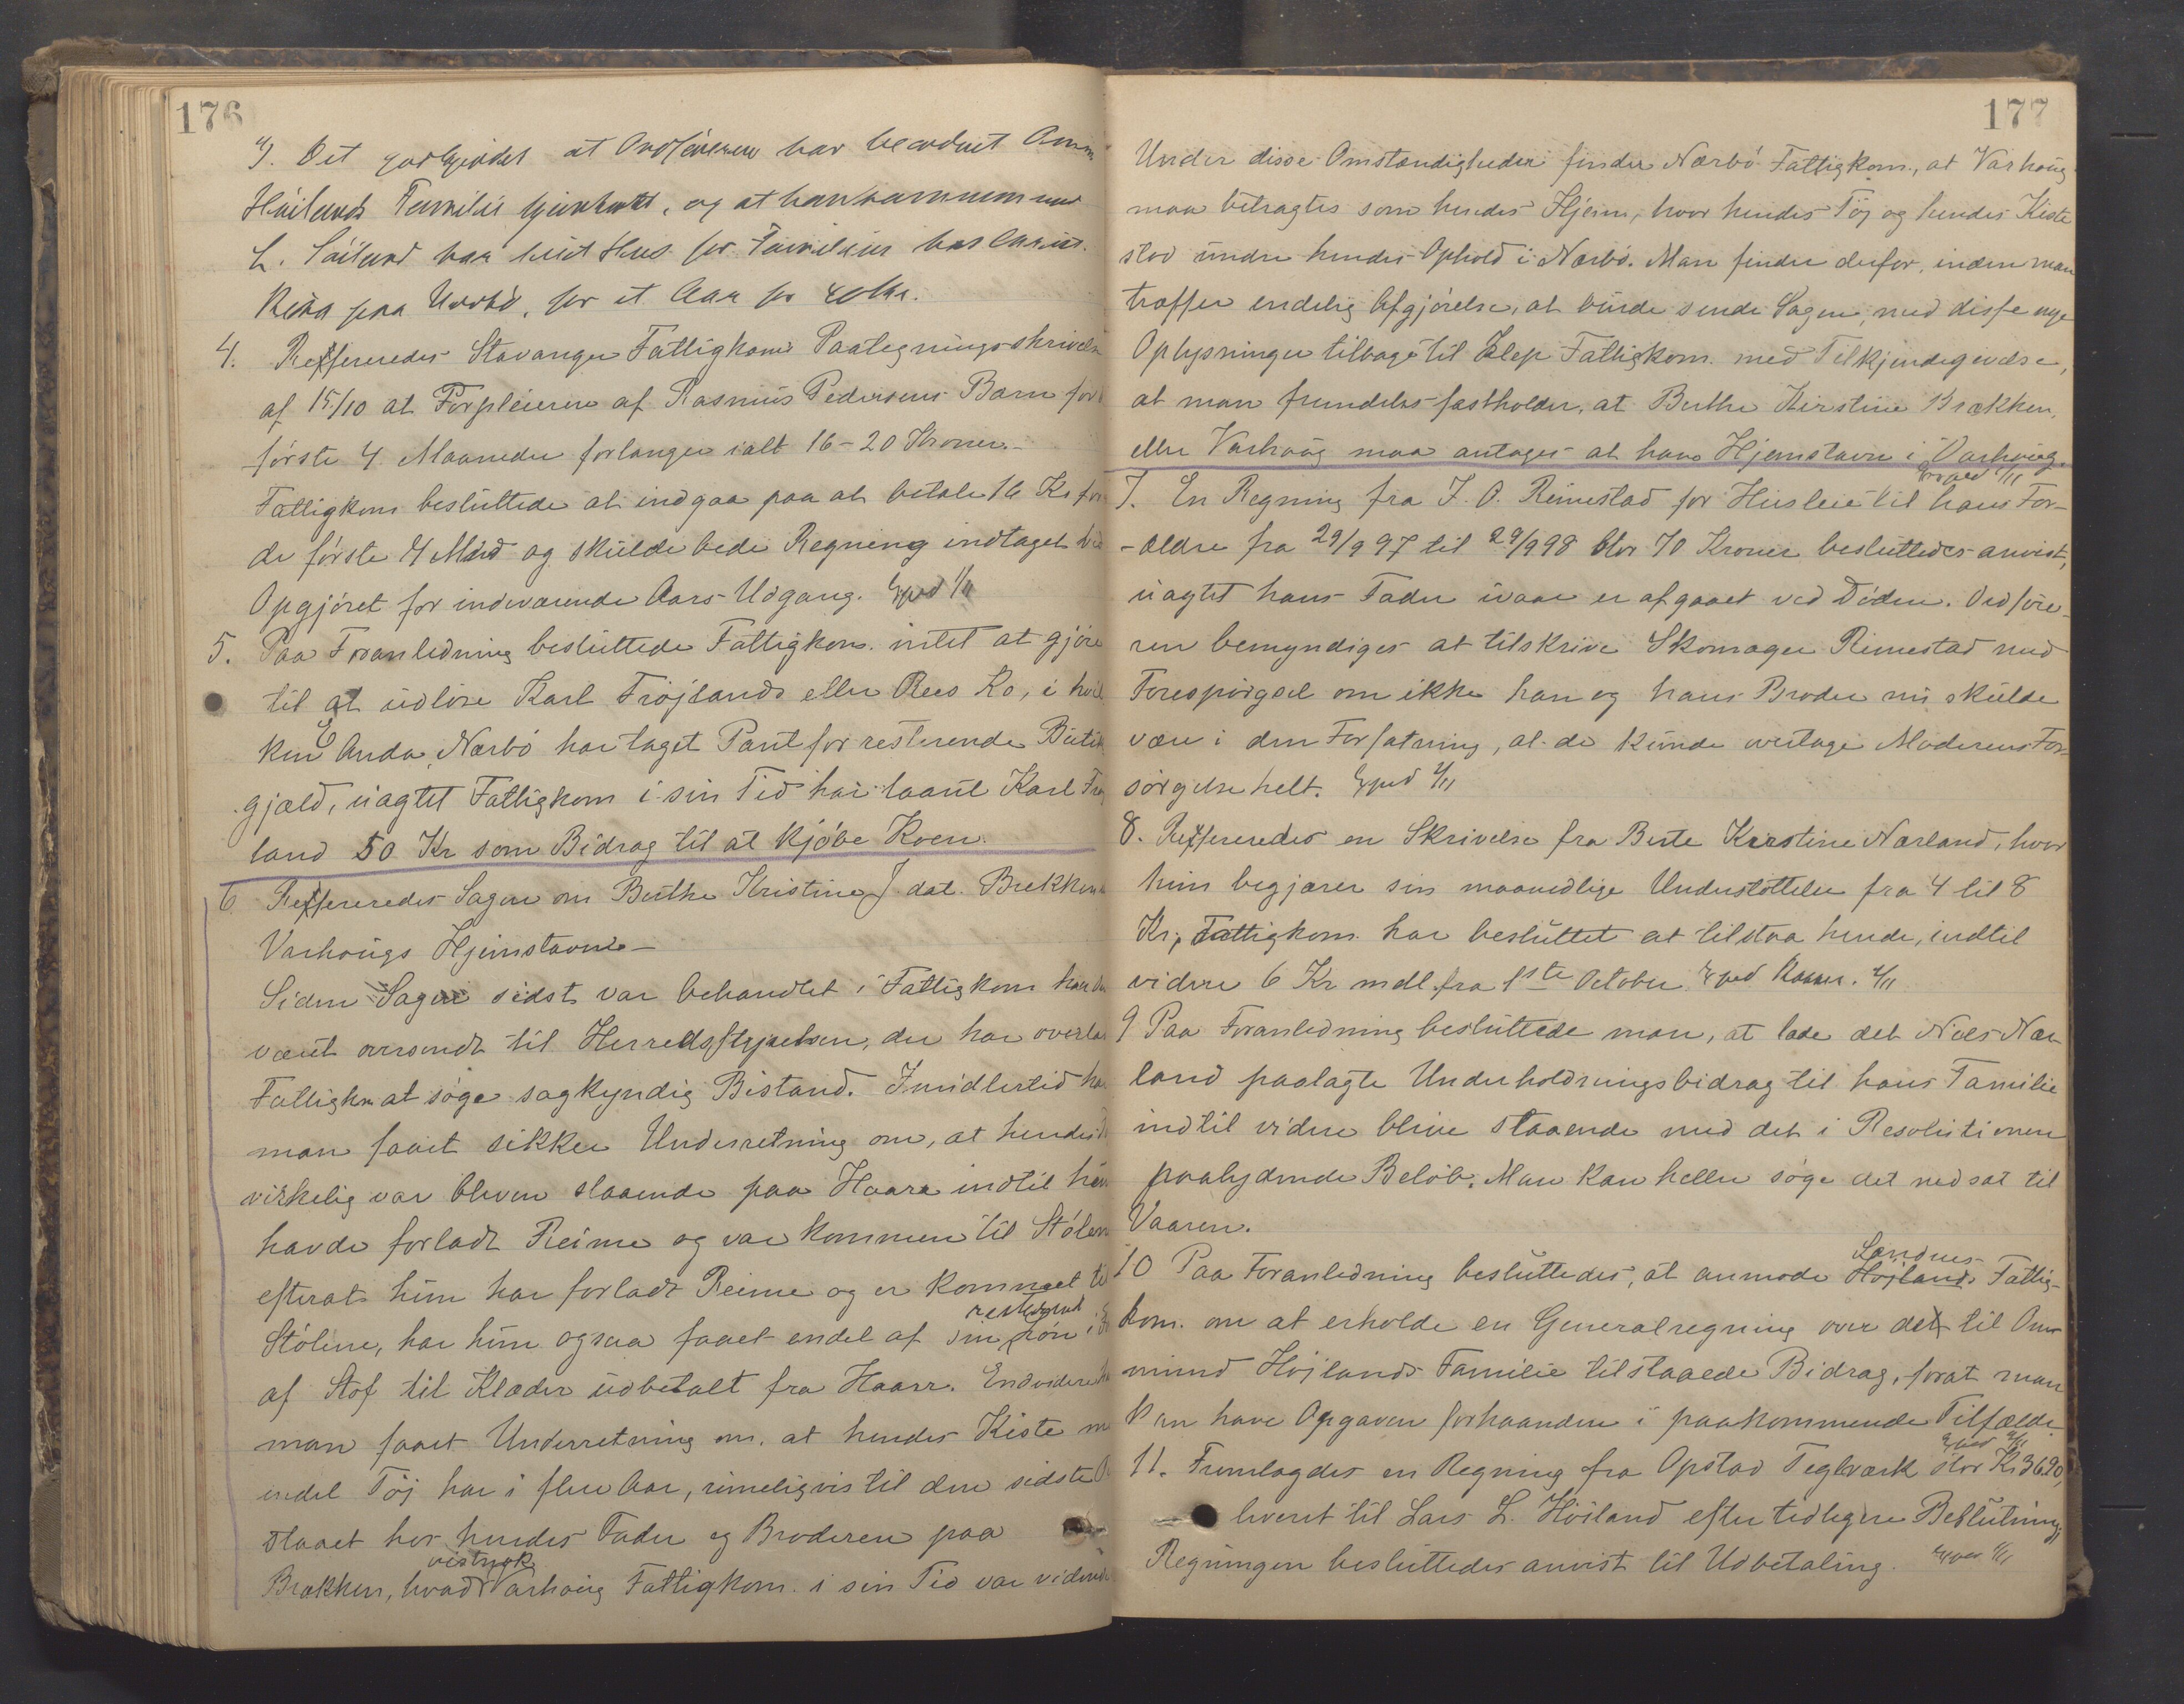 176
3. Det godkjendes at Ordføreren har beordret Amm
Høilands Familie hjemsendt, og at han sammen med
L. Høiland har leiet Hus for Familien hos
paa Nærbø, for et Aar for 40 Kr.
4. Reffereredes Stavanger Fattigkoms Paategningsskrivelse
af 15/10 at Forpleieren af Rasmus Pedersens Barn for
første 4 Maaneder forlanger ialt 16-20 Kroner.-
Fattigkom besluttede at indgaa paa at betale 16 Kr for
de første 4 Mdr og skulde bede Regning indtaget ved
Opgjøret for indeværende Aars Udgang. Exped 1/11
5. Paa Foranledning besluttede Fattigkom. intet at gjøre
til at udløse Karl Frøjlands eller Rees Ko, i hvil
ken E Anda, Nærbø har taget Pant for resterende Butik
gjæld, uagtet Fattigkom i sin Tid har laant Karl Frøj
land 50 Kr som Bidrag til at kjøbe Koen.
6 Reffereredes Sagen om Berthe Kristine J dat. Brekken
Varhougs Hjemstavn.-
Siden Sagen sidst var behandlet i Fattigkom har den
været oversendt til Herredsstyrelsen, der har overla
Fattigkm at søge sagkyndig Bistand. Imidlertid har
man faaet sikker Underretning om, at hendes
virkelig var bleven staaende paa Haarr indtil hun
havde forladt Reime og var kommen til Stølen
efterat hun har forladt Reime og er kommet til
Stølene, har hun ogsaa faaet endel af sin resterende Løn i
af Stof til Klæder udbetalt fra Haarr. Endvidere har
man faaet Underretning om, at hendes Kiste m
endel Tøj har i flere Aar, rimeligvis til den sidste
staaet hos hendes Fader og Broderen paa
Brækken, hvad vistnok Varhoug Fattigkom. i sin Tid var vidende
177
Under disse Omstændigheder finder Nærbø Fattigkom., at Varhoug
maa betragtes som hendes Hjem, hvor hendes Tøj og hendes Kiste
stod under hendes Ophold i Nærbø. Man finder derfor, inden man
træffer endelig Afgjørelse, at burde sende Sagen, med disse nye
Oplysninger tilbage til Klep Fattigkom. med Tilkjendegivelse,
at man fremdeles fastholder, at Berthe Kirstine Brækken,
eller Varhoug maa antages at have Hjemstavn i Varhoug.
Exped 1/11
7. En Regning fra J. O. Reimestad for Husleie til hans For-
-ældre fra 29/9 97 til 29/9 98 stor 70 Kroner besluttedes anvist,
uagtet hans Fader ivaar er afgaaet ved Døden. Ordføre-
ren bemyndiges at tilskrive Skomager Rimestad med
Forespørgsel om ikke han og hans Broder nu skulde
være i den Forfatning, at de kunde overtage Moderens For-
sørgelse helt. Exped 1/11
8. Reffereredes en Skrivelse fra Berte Kirstine Nærland, hvor
hun begjærer sin maanedlige Understøttelse fra 4 til 8
Kr, Fattigkom. har besluttet at tilstaa hende, indtil
videre 6 Kr mdl. fra 1ste October. Exped Kasser. 1/11
9 Paa Foranledning besluttede man, at lade det Niels Nær-
land paalagte Underholdningsbidrag til hans Familie
indtil videre blive staaende med det i Resolutionen
paalydende Beløb. Man kan heller søge det nedsat til
Vaaren.
10 Paa Foranledning besluttedes, at anmode Højlands Sandnes Fattig-
kom. om at erholde en Generalregning over det til Om-
mund Højlands Familie tilstaaede Bidrag, forat man
kan have Opgaven forhaanden i paakommende Tilfælde.
Exped 1/11
11. Fremlagdes en Regning fra Opstad Teglværk stor Kr 36.20,
leveret til Lars L. Høiland efter tidligere Beslutning,
Regningen besluttedes anvist til Udbetaling. Exped 1/11